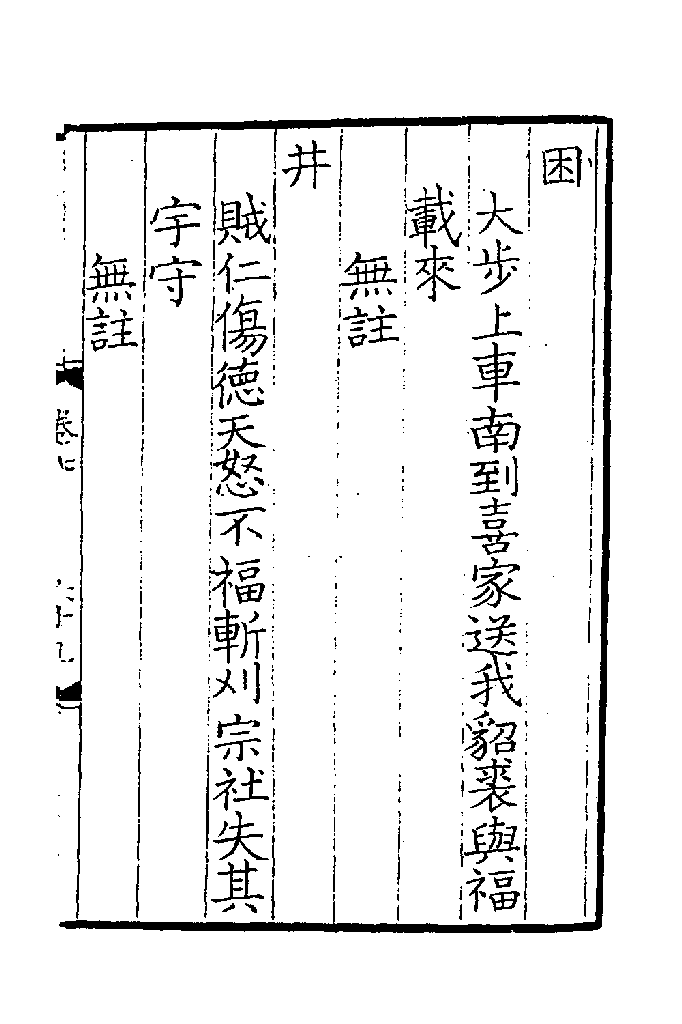 困
大步上車南到喜家送我貂裘與福
載來
無註
井
賊仁傷德天怒不福斬刈宗社失其
宇守
無註
卷七
六十九